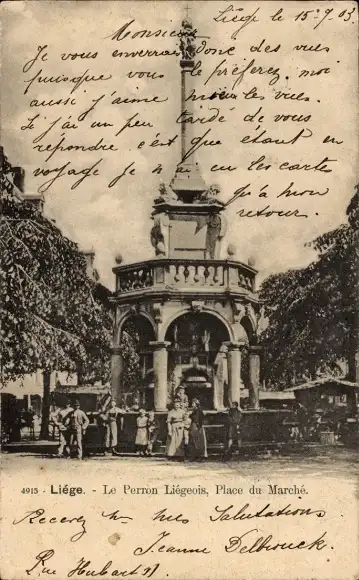 Liège le 15-7-03
Monsieur
Je vous enverrai donc des vues
puisque vous le préferez, moi
aussi j'aime mieux les vues.
Si j'ai un peu tardé de vous
répondre c'est que étant en
voyage je n'ai eu les cartes
qu'à mon
retour.
4915 - Liége. - Le Perron Liégeois, Place du Marché.
Recevez M. mes Salutations
Jeanne Delbrouck.
Rue Hubert